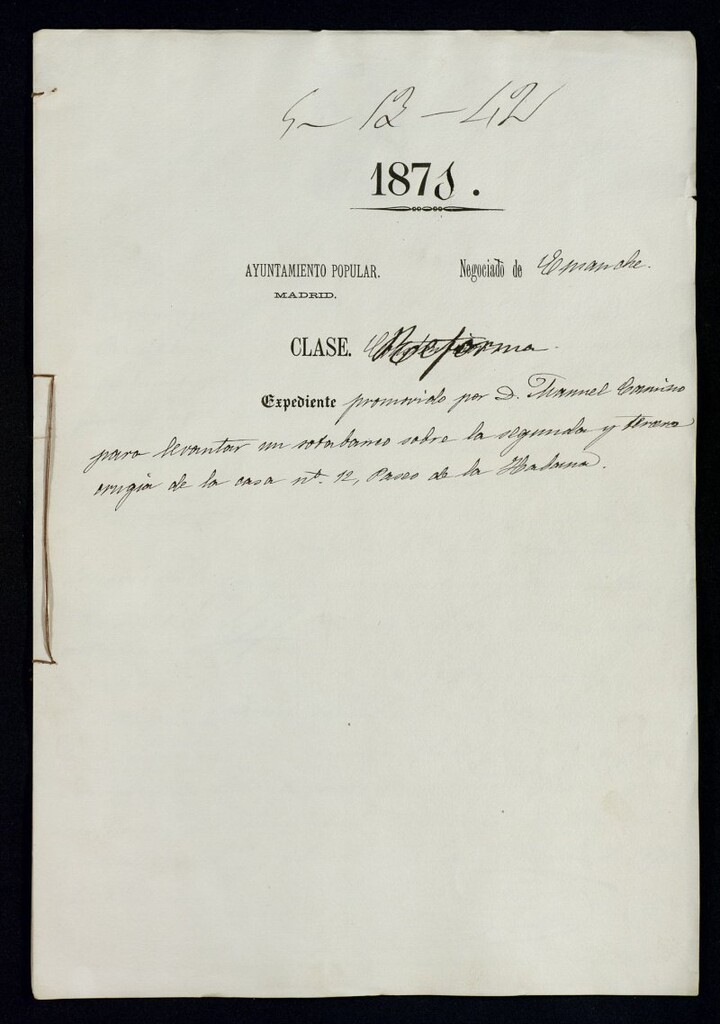 5-13-42
1871.
AYUNTAMIENTO POPULAR. Negociado de Ensanche.
MADRID.
CLASE. Reforma
Expediente promovido por D. Manuel Camino
para levantar un sotabanco sobre la segunda y tercera
crugía de la casa nº. 12, Paseo de la Habana.